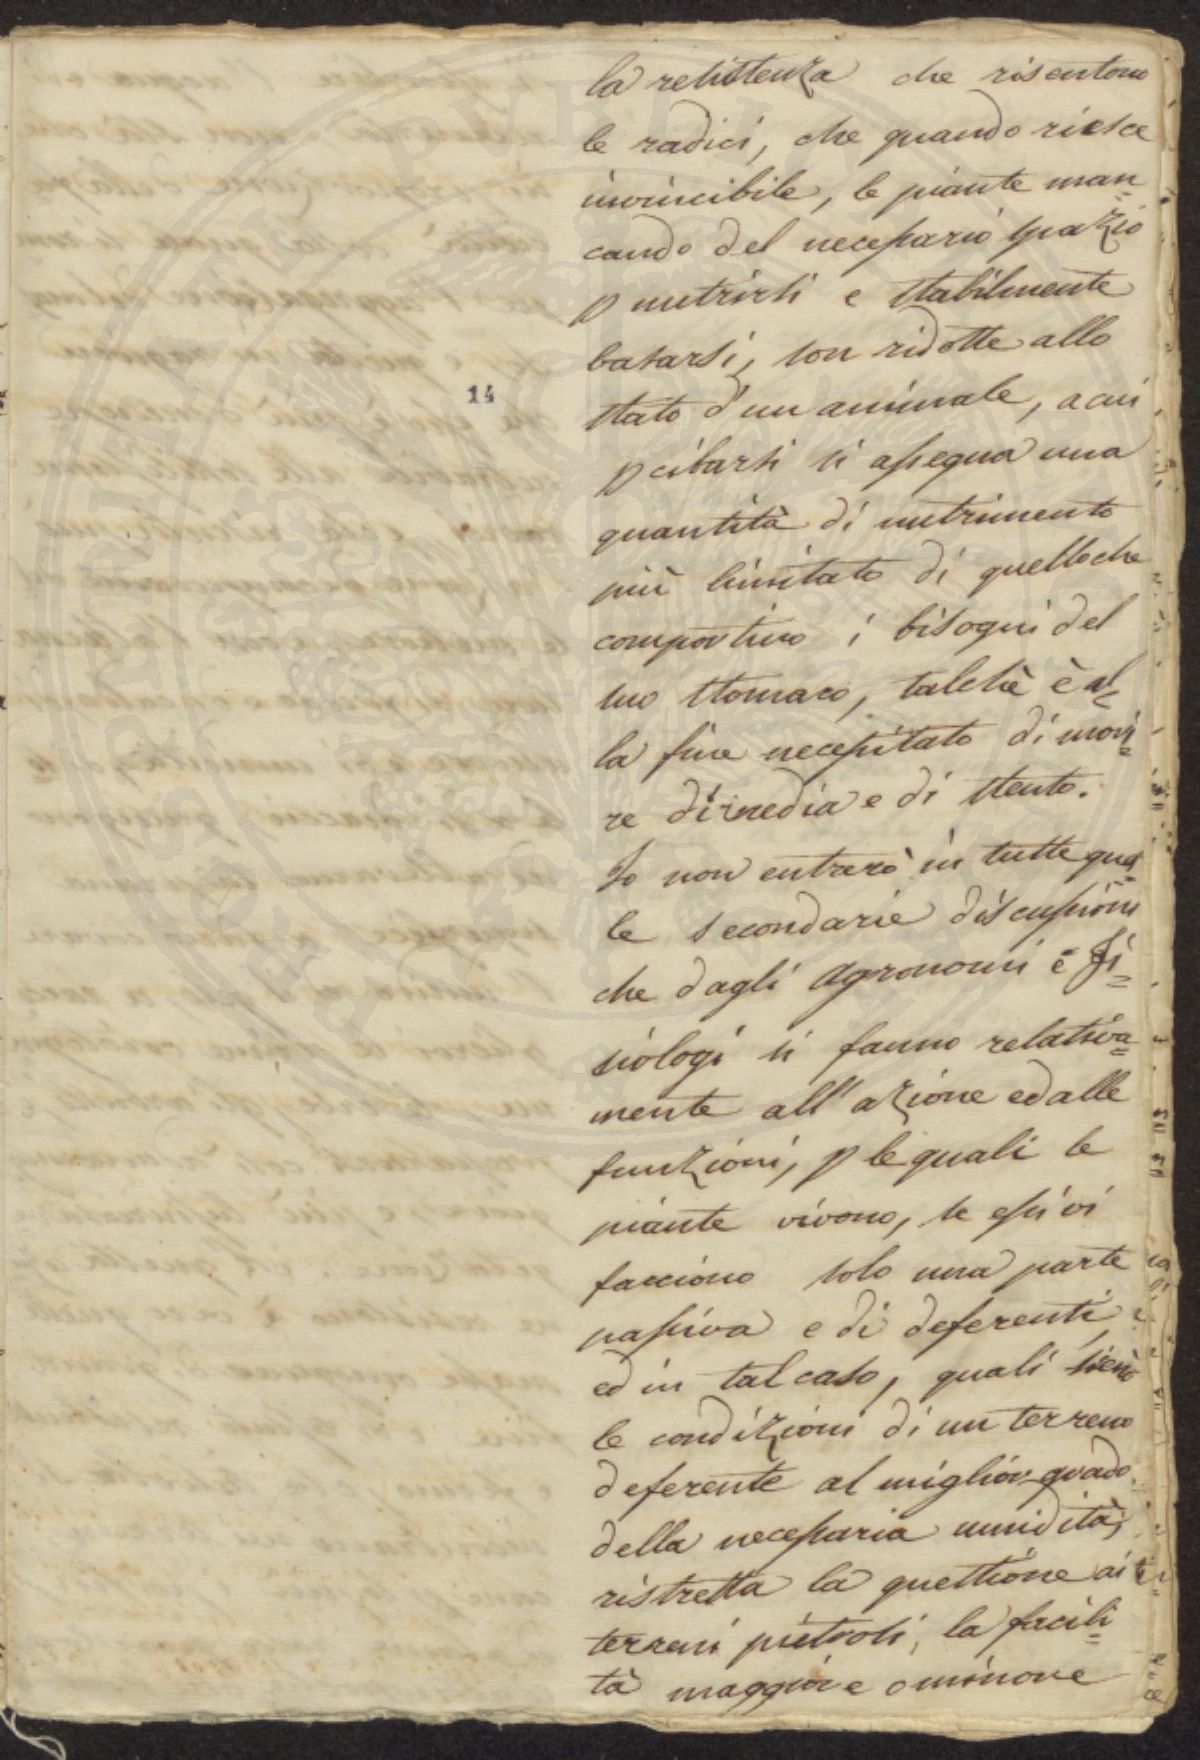 la resistenza che risentono
le radici, che quando riesce
invincibile, le piante man=
cando del necessario spazio
p nutrirsi e stabilmente
basarsi, son ridotte allo
stato d'un animale, a cui
14
p cibarsi si assegna una
quantità di nutrimento
più limitato di quello che
comportino i bisogni del
suo stomaco, talchè è al=
la fine necessitato di mori=
re d'inedia e di stento.
Io non entrerò in tutte quel=
le secondarie discussioni
che dagli Agronomi e Fi=
siologi si fanno relativa=
mente all'azione ed alle
funzioni, p le quali le
piante vivono, se essi vi
facciono solo una parte
passiva e di deferenti,
ed in tal caso, quali sieno
le condizioni di un terreno
deferente al miglior grado
della necessaria umidità;
ristretta la questione ai
terreni pietrosi, la facili=
tà maggiore o minore